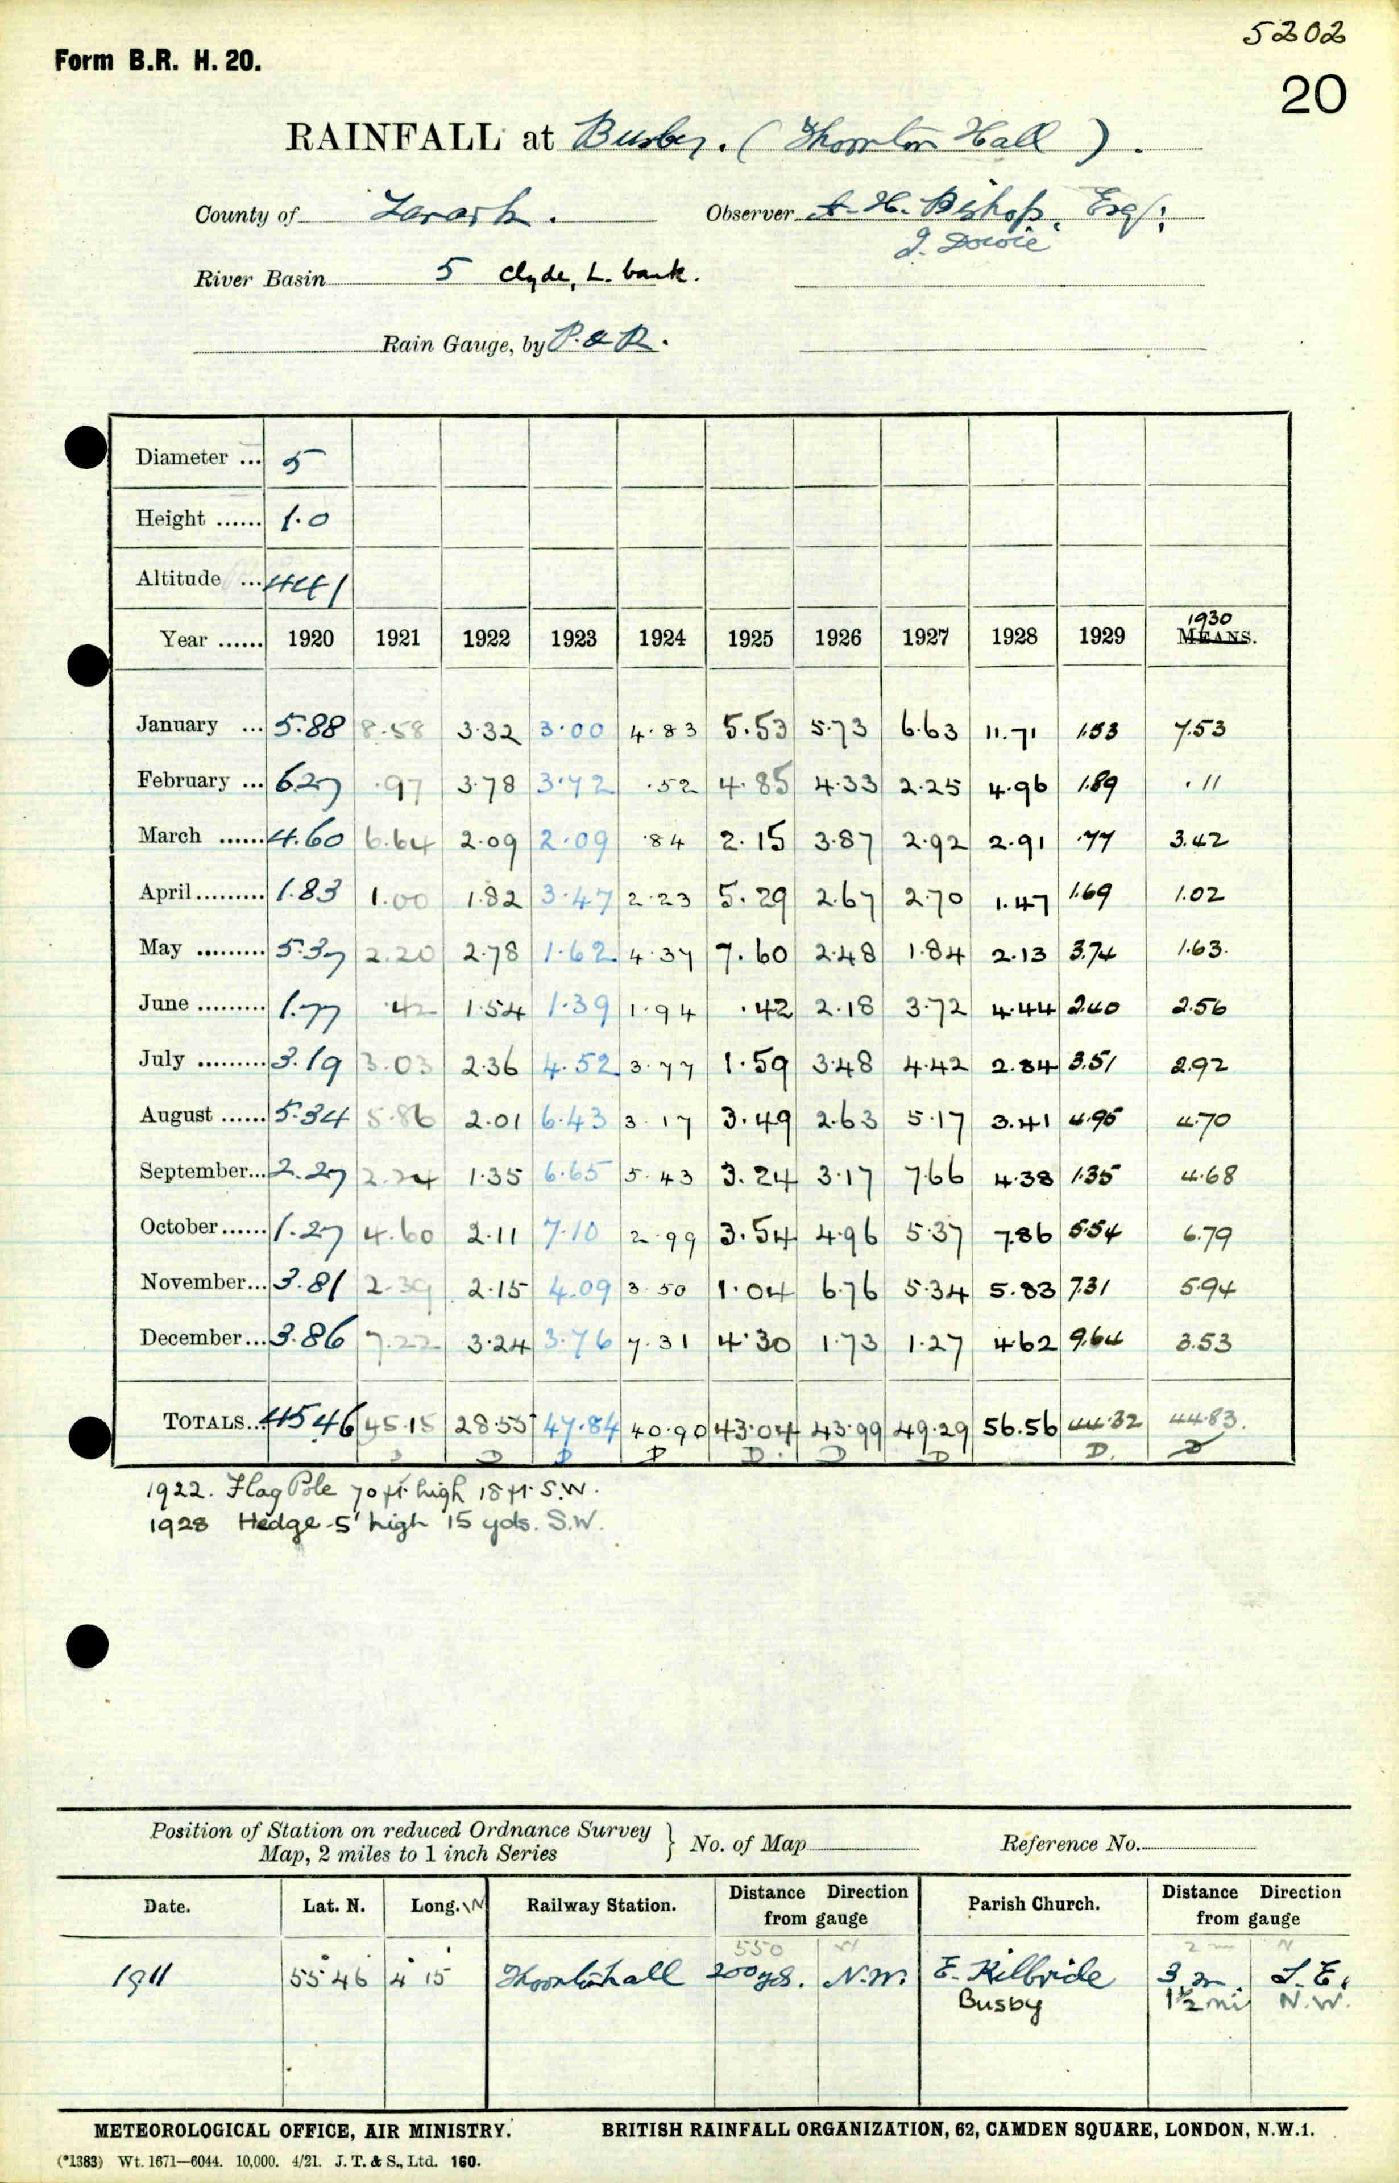 5202
Form B.R. H. 20.
20
RAINFALL at Busby. (Thornton Hall).
County of Lanark. Observer A. H. Bishop, Esq;
J. Dowie
River Basin 5 Clyde, L. bank.
Rain Gauge, by P. & R.
Diameter ... 5
Height ...... 1.0
Altitude ... 441
1930
Year ...... 1920 1921 1922 1923 1924 1925 1926 1927 1928 1929 MEANS.
January ... 5.88 8.58 3.32 3.00 4.83 5.53 5.73 6.63 11.71 1.53 7.53
February ... 6.27 .97 3.78 3.72 .52 4.85 4.33 2.25 4.96 1.89 .11
March ...... 4.60 6.64 2.09 2.09 .84 2.15 3.87 2.92 2.91 .77 3.42
April ......... 1.83 1.00 1.82 3.47 2.23 5.29 2.67 2.70 1.47 1.69 1.02
May ......... 5.37 2.20 2.78 1.62 4.37 7.60 2.48 1.84 2.13 3.74 1.63.
June ......... 1.77 .42 1.54 1.39 1.94 .42 2.18 3.72 4.44 2.40 2.56
July ......... 3.19 3.03 2.36 4.52 3.77 1.59 3.48 4.42 2.84 3.51 2.92
August ...... 5.34 5.86 2.01 6.43 3.17 3.49 2.63 5.17 3.41 4.95 4.70
September... 2.27 2.24 1.35 6.65 5.43 3.24 3.17 7.66 4.38 1.35 4.68
October ...... 1.27 4.60 2.11 7.10 2.99 3.54 4.96 5.37 7.86 5.54 6.79
November... 3.81 2.39 2.15 4.09 3.50 1.04 6.76 5.34 5.83 7.31 5.94
December... 3.86 7.22 3.24 3.76 7.31 4.30 1.73 1.27 4.62 9.64 3.53
TOTALS... 45.46 45.15 28.55 47.84 40.90 43.04 43.99 49.29 56.56 44.32 44.83.
D D D D. D D D. D
1922. Flag Pole 70 ft high 18 ft S.W.
1928 Hedge 5' high 15 yds. S.W.
Position of Station on reduced Ordnance Survey
Map, 2 miles to 1 inch Series } No. of Map Reference No.
Date. Lat. N. Long. W Railway Station. Distance Direction from gauge Parish Church. Distance Direction from gauge
550 W 2 m N
1911 55° 46' 4° 15' Thorntonhall 200 yds. N.W. E. Kilbride 3 m. S.E.
Busby 1½ mi N.W.
METEOROLOGICAL OFFICE, AIR MINISTRY. BRITISH RAINFALL ORGANIZATION, 62, CAMDEN SQUARE, LONDON, N.W.1.
(*1383) Wt. 1671—6044. 10,000. 4/21. J. T. & S., Ltd. 160.